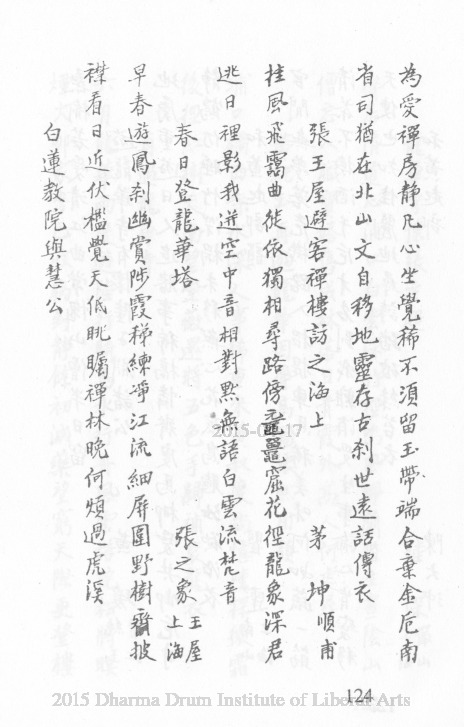 為愛禪房静凡心坐覺稀不須留玉帶端合棄金卮南
省司猶在北山文自移地靈存古刹世遠話傳衣
張王屋避客禪樓訪之海上 茅坤順甫
挂風飛靄曲徒依獨相尋路傍黿鼉窟花徑龍象深君
逃日裡影我逆空中音相對默無語白雲流梵音
春日登龍華塔 張之象 王屋 上海
早春遊鳳刹幽賞陟霞梯練凈江流細屏圍野樹齊披
襟看日近伏檻覺天低眺矚禪林晚何煩過虎溪
白蓮教院與慧公
124
2015 Dharma Drum Institute of Liberal Arts